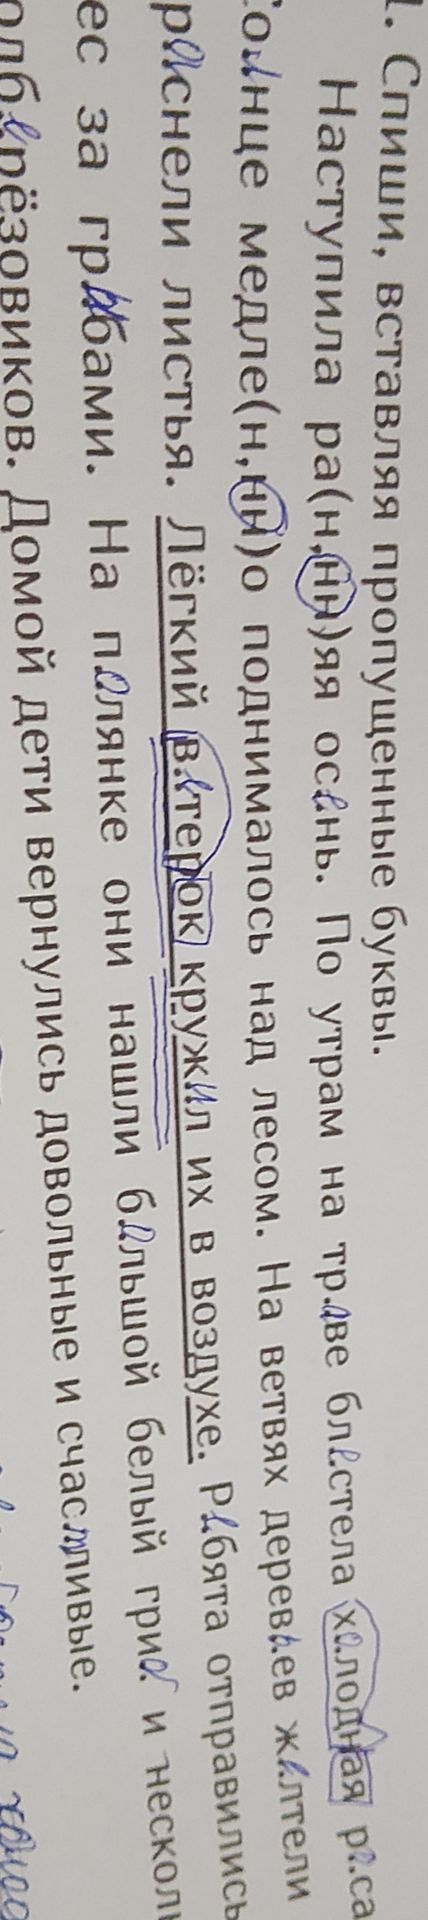 1. Спиши, вставляя пропущенные буквы.
Наступила ра(н,нн)яя осень. По утрам на траве блестела холодная роса
Солнце медле(н,нн)о поднималось над лесом. На ветвях деревьев желтели
краснели листья. Лёгкий ветерок кружил их в воздухе. Ребята отправились
ес за грибами. На полянке они нашли большой белый гриб и несколь
подберёзовиков. Домой дети вернулись довольные и счастливые.